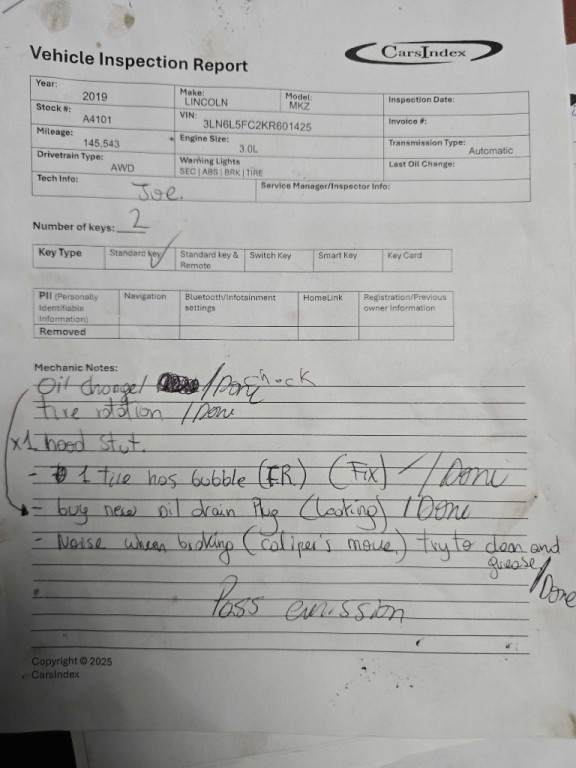 Vehicle Inspection Report
CarsIndex
Year: 2019 Make: LINCOLN Model: MKZ Inspection Date:
Stock #: A4101 VIN: 3LN6L5FC2KR601425 Invoice #:
Mileage: 145,543 Engine Size: 3.0L Transmission Type: Automatic
Drivetrain Type: AWD Warning Lights SEC | ABS | BRK | TIRE Last Oil Change:
Tech Info: Joe. Service Manager/Inspector Info:
Number of keys: 2
Key Type Standard key Standard key & Remote Switch Key Smart Key Key Card
PII (Personally Identifiable Information) Navigation Bluetooth/Infotainment settings HomeLink Registration/Previous owner information
Removed
Mechanic Notes:
Oil change / Done check
tire rotation / Done
x1 hood stut.
- 1 tire has bubble (FR.) (Fix) / Done
- buy new oil drain Plug (leaking) / Done
- Noise when braking (caliper's move.) try to clean and
grease / Done
Pass emission
Copyright © 2025
CarsIndex